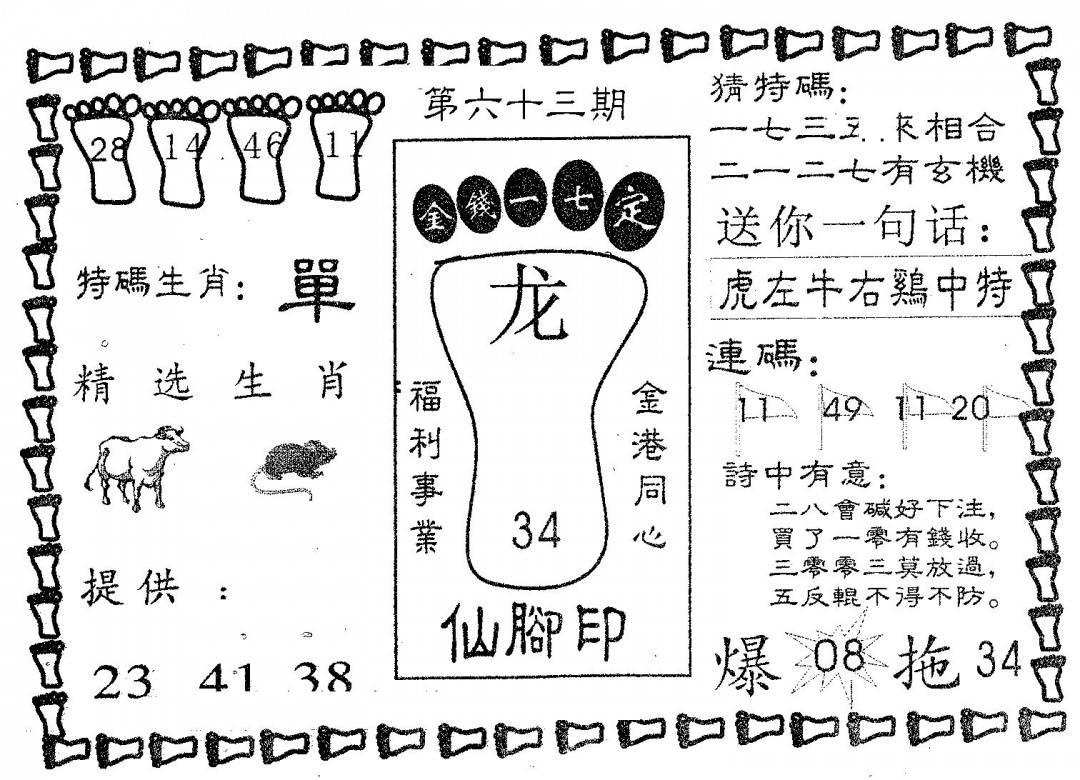 第六十三期
28 14 46 11
特碼生肖：單
精选生肖
提供：
23 41 38
金錢一七定
龙
34
福利事業
金港同心
仙腳印
猜特碼：
一七三五 相合
二一二七有玄機
送你一句话：
虎左牛右鷄中特
連碼：
11 49 11 20
詩中有意：
二八會碱好下注，
買了一零有錢收。
三零零三莫放過，
五反輥不得不防。
爆 08 拖 34